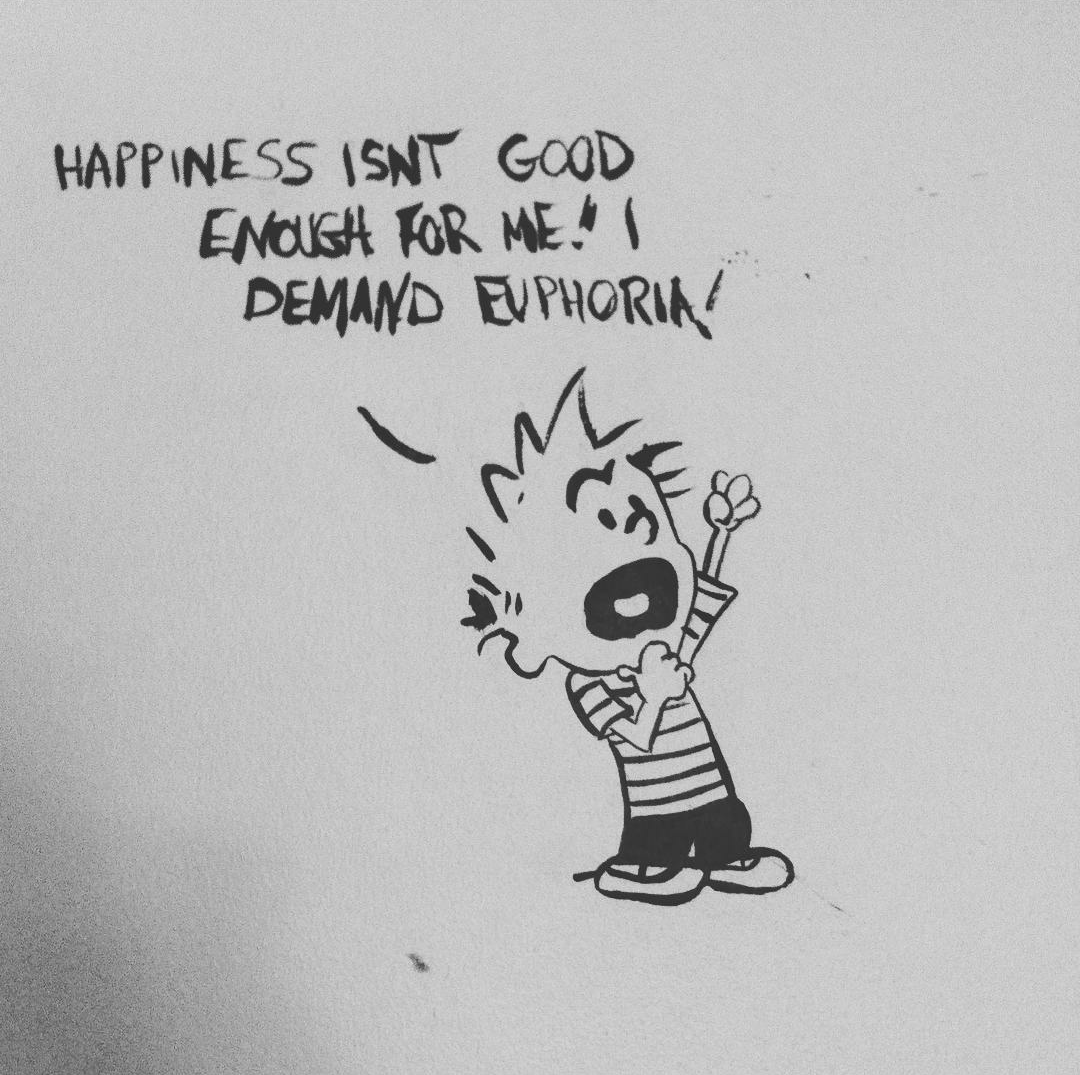 HAPPINESS ISNT GOOD
ENOUGH FOR ME!! I
DEMAND EUPHORIA!